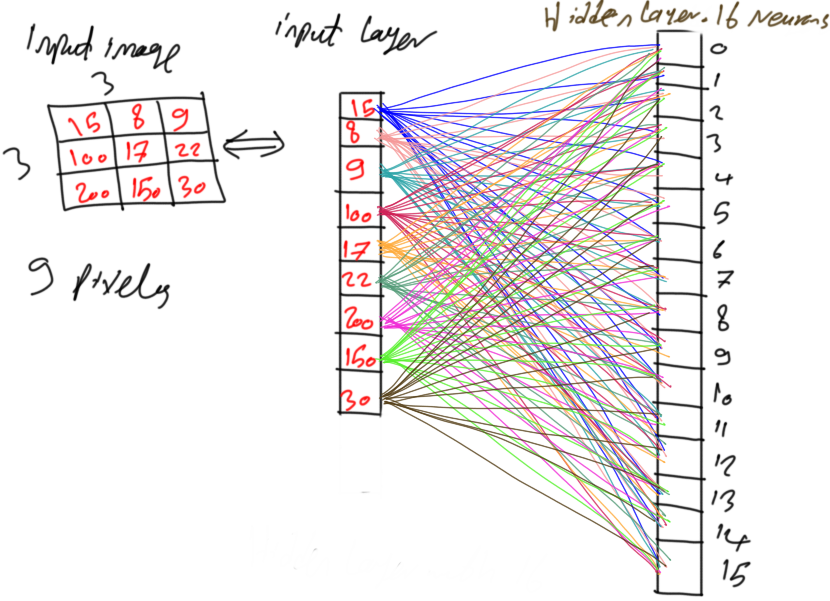 Input image
3
15 8 9
3
100 17 22
200 150 30
9 pixels
input layer
15
8
9
100
17
22
200
150
30
Hidden layer. 16 neurons
0
1
2
3
4
5
6
7
8
9
10
11
12
13
14
15